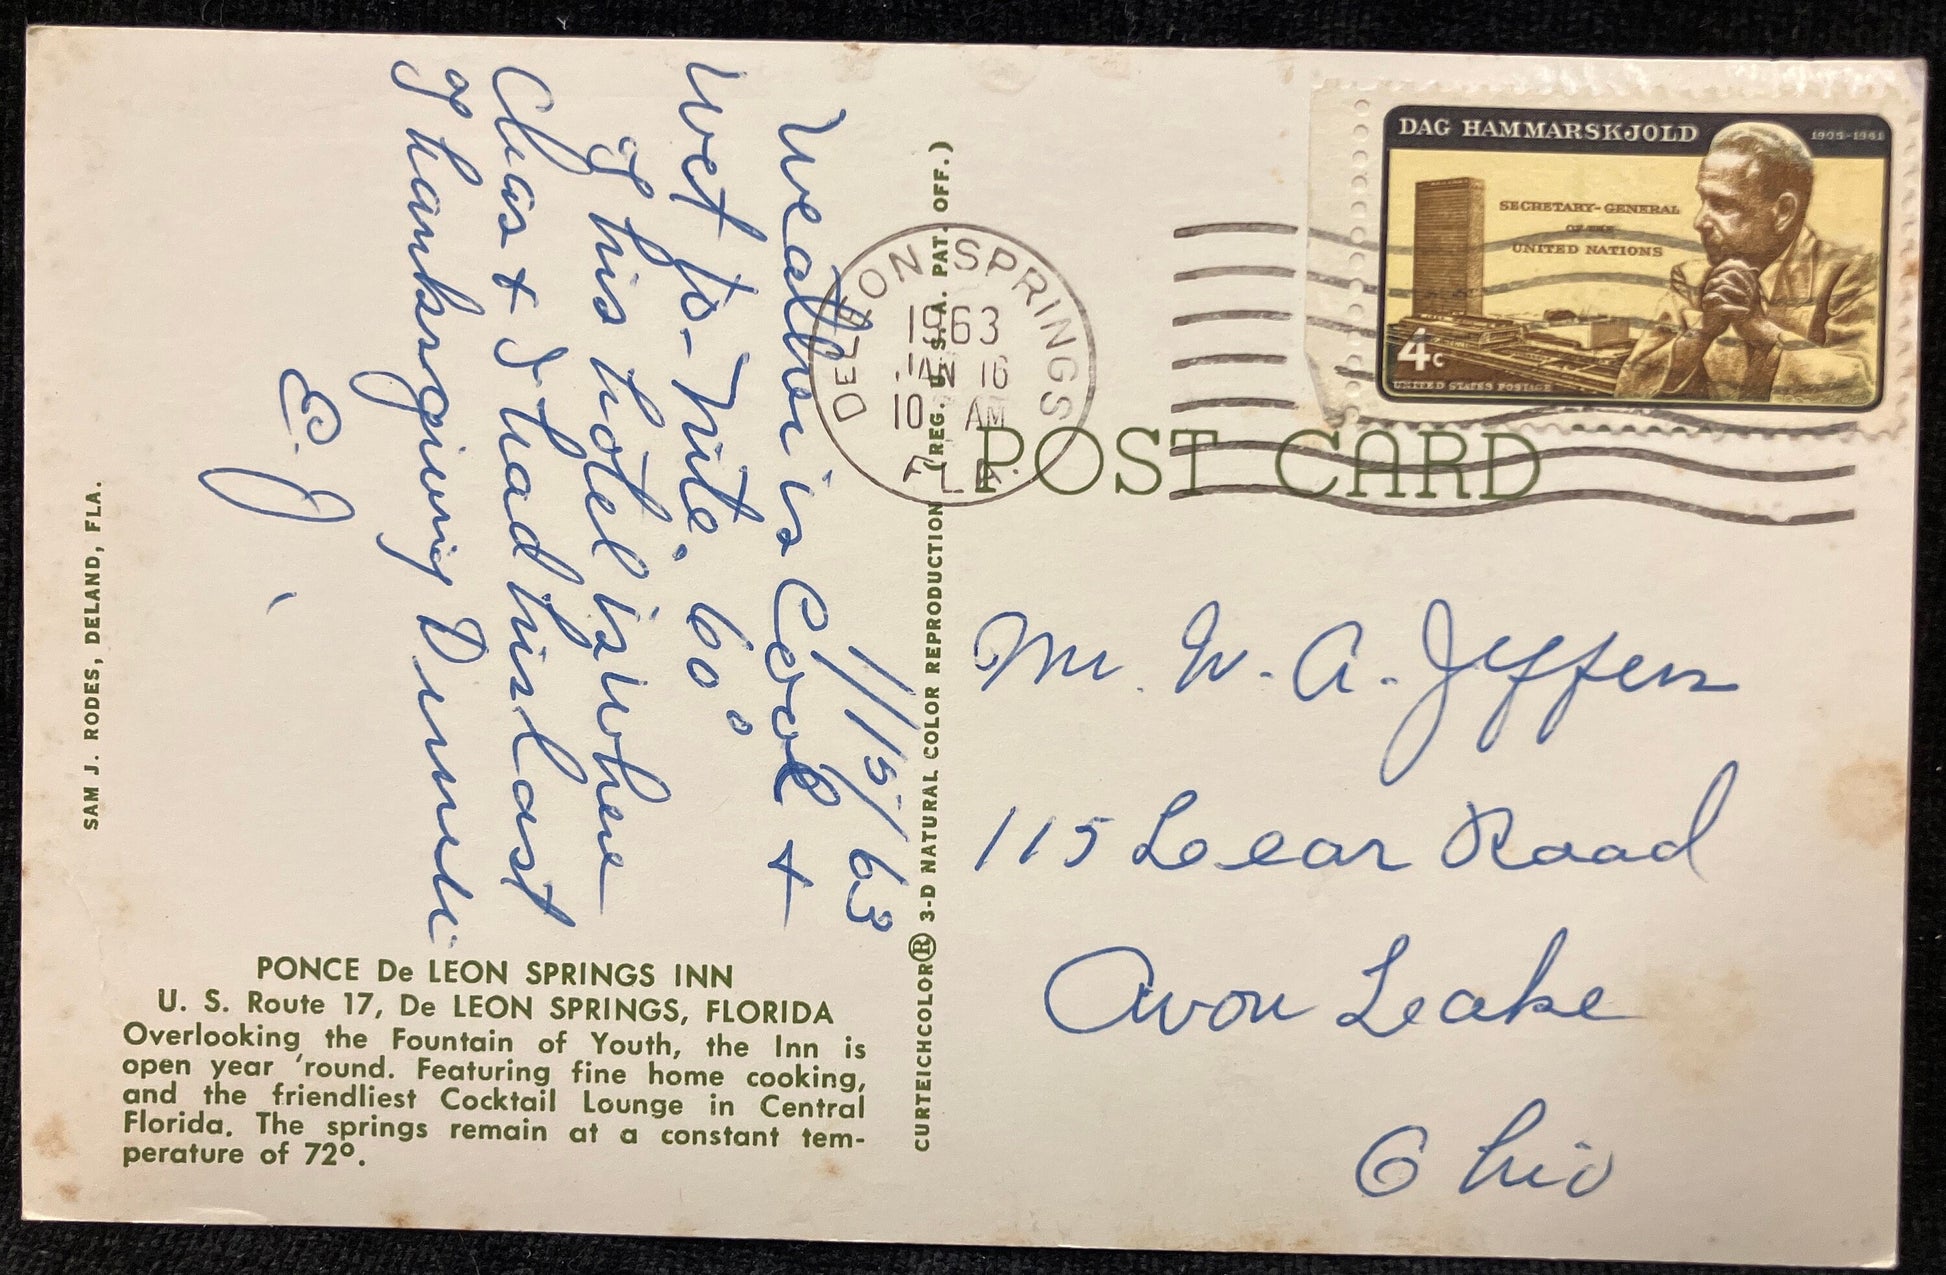 1/15/63
Weather is Cool +
Wet to-nite. 60°
This hotel is where
Chas + I had his last
Thanksgiving Dinner
E. J.
PONCE De LEON SPRINGS INN
U. S. Route 17, De LEON SPRINGS, FLORIDA
Overlooking the Fountain of Youth, the Inn is
open year 'round. Featuring fine home cooking,
and the friendliest Cocktail Lounge in Central
Florida. The springs remain at a constant tem-
perature of 72º.
SAM J. RODES, DELAND, FLA.
CURTEICHCOLOR® 3-D NATURAL COLOR REPRODUCTION (REG. U.S.A. PAT. OFF.)
POST CARD
DE LEON SPRINGS
1963
JAN 16
10 AM
FLA.
DAG HAMMARSKJOLD
1905-1961
SECRETARY-GENERAL
OF THE
UNITED NATIONS
4c
UNITED STATES POSTAGE
Mr. W. A. Jeffers
115 Lear Road
Avon Lake
Ohio